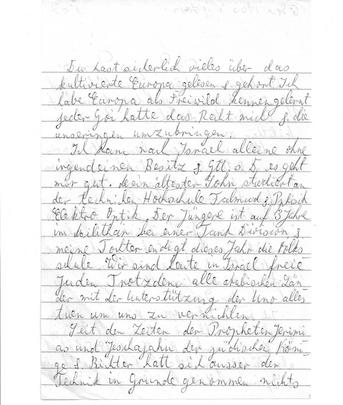 Du hast sicherlich vieles über das
kultivierte Europa gelesen & gehört. Ich
habe Europa als Freiwild kennengelernt
jeder Goi hatte das Recht mich & die
unseringen umzubringen.
Ich kam nach Israel alleine ohne
irgendeinen Besitz & Gtt. s. D. es geht
mir gut. Mein ältester Sohn studiert an
der Technischen Hochschule Talmud &
Elektro Optik. Der Jüngere ist auf 3 Jahre
im Militär bei einer Tank Division &
meine Tochter endigt dieses Jahr die Volks
schule. Wir sind heute in Israel freie
Juden. Trotzdem alle arabischen Län-
der mit der Unterstützung der Uno alles
tuen um uns zu vernichten.
Seit den Zeiten der Propheten Jerimi
as und Jeschajahu der jüdischen Köni-
ge & Richter hatt sich ausser der
Technik in Grunde genommen nichts